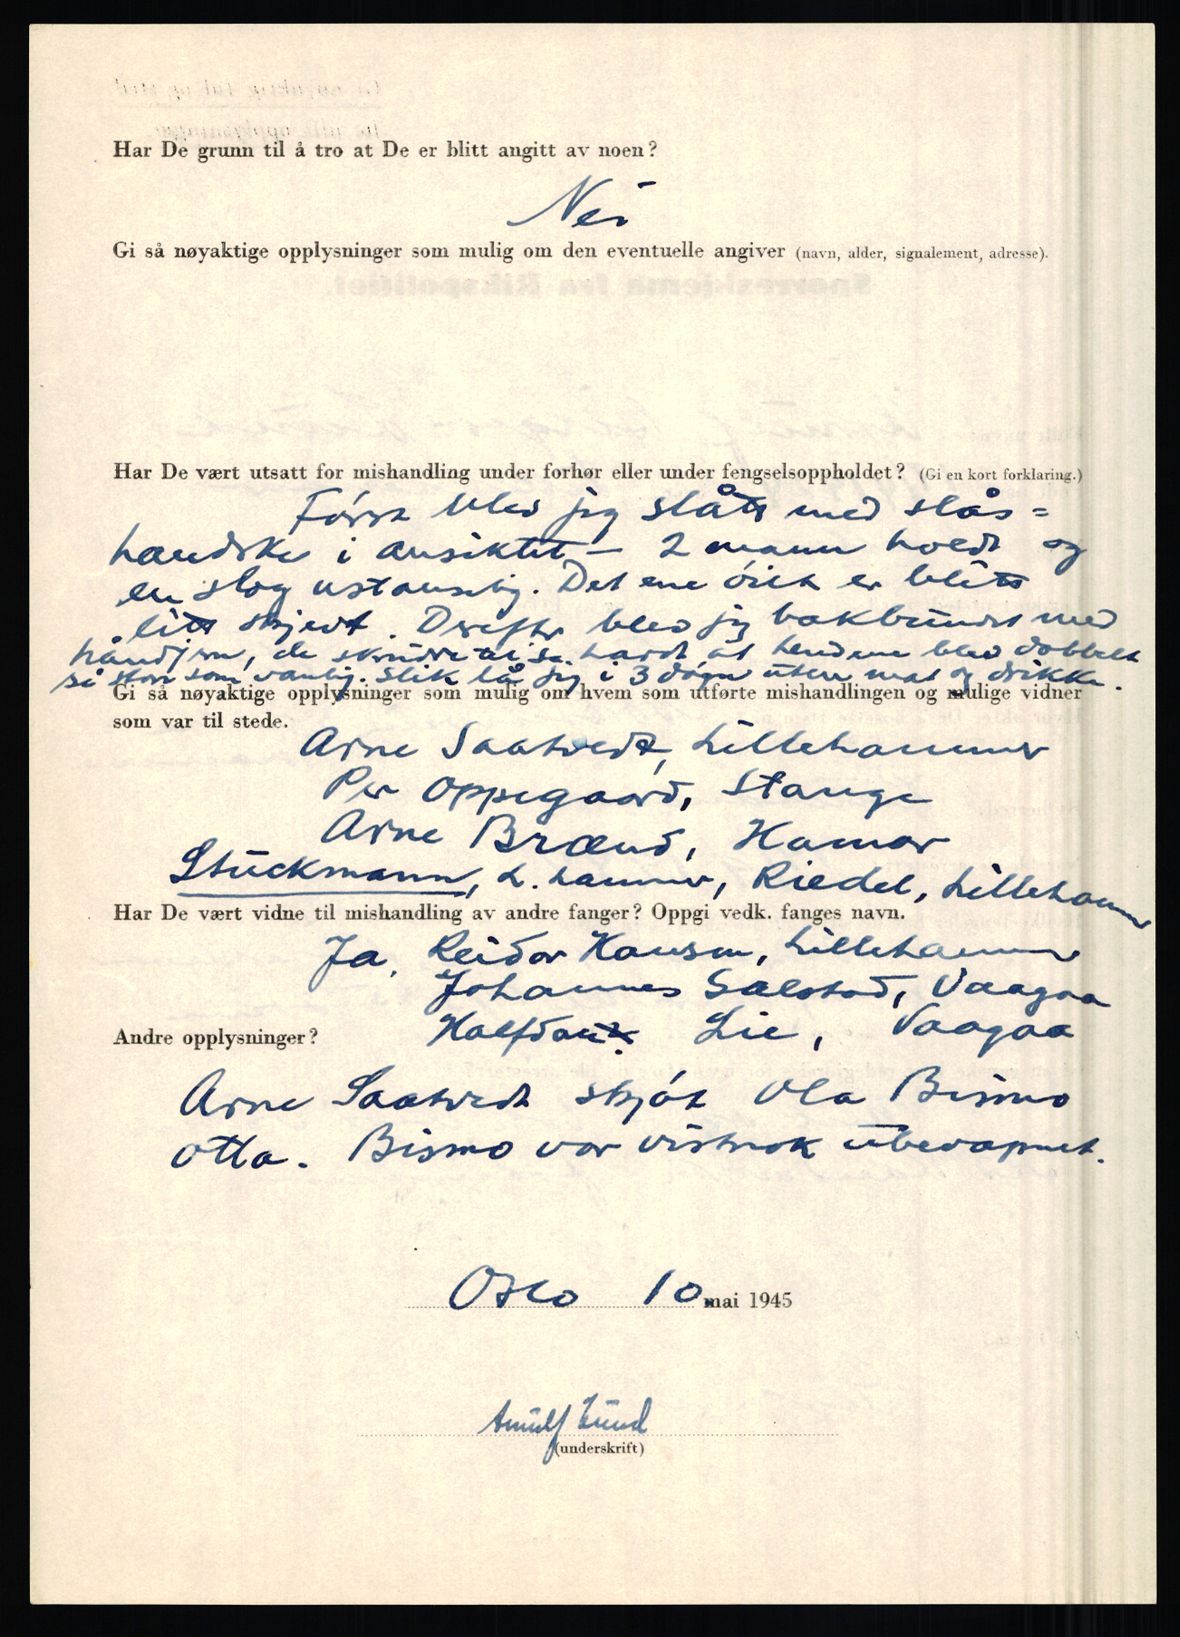 Har De grunn til å tro at De er blitt angitt av noen?
Nei
Gi så nøyaktige opplysninger som mulig om den eventuelle angiver (navn, alder, signalement, adresse).
Har De vært utsatt for mishandling under forhør eller under fengselsoppholdet? (Gi en kort forklaring.)
Först blev jeg slått med slås=
handske i ansiktet – 2 mann holdt og
en slog ustanselig. Det ene öiet er blitt
litt skjevt. Derefter blev jeg bakbundet med
håndjern, de skrudde til så hardt at hendene blev dobbelt
så store som vanlig. Slik lå jeg i 3 dögn uten mat og drikke.
Gi så nøyaktige opplysninger som mulig om hvem som utførte mishandlingen og mulige vidner
som var til stede.
Arne Saatvedt, Lillehammer
Per Oppegaard, Stange
Arne Brænd, Hamar
Stuckmann, L.hammer, Riedel, Lillehammer
Har De vært vidne til mishandling av andre fanger? Oppgi vedk. fanges navn.
Ja, Reidar Hansen, Lillehammer
Johannes Sælstad, Vaagaa
Andre opplysninger?
Halfdan Lie, Vaagaa
Arne Saatvedt skjöt Ola Bismo
Otta. Bismo var vistnok ubevapnet.
Oslo 10 mai 1945
Arnulf Lund
(underskrift)